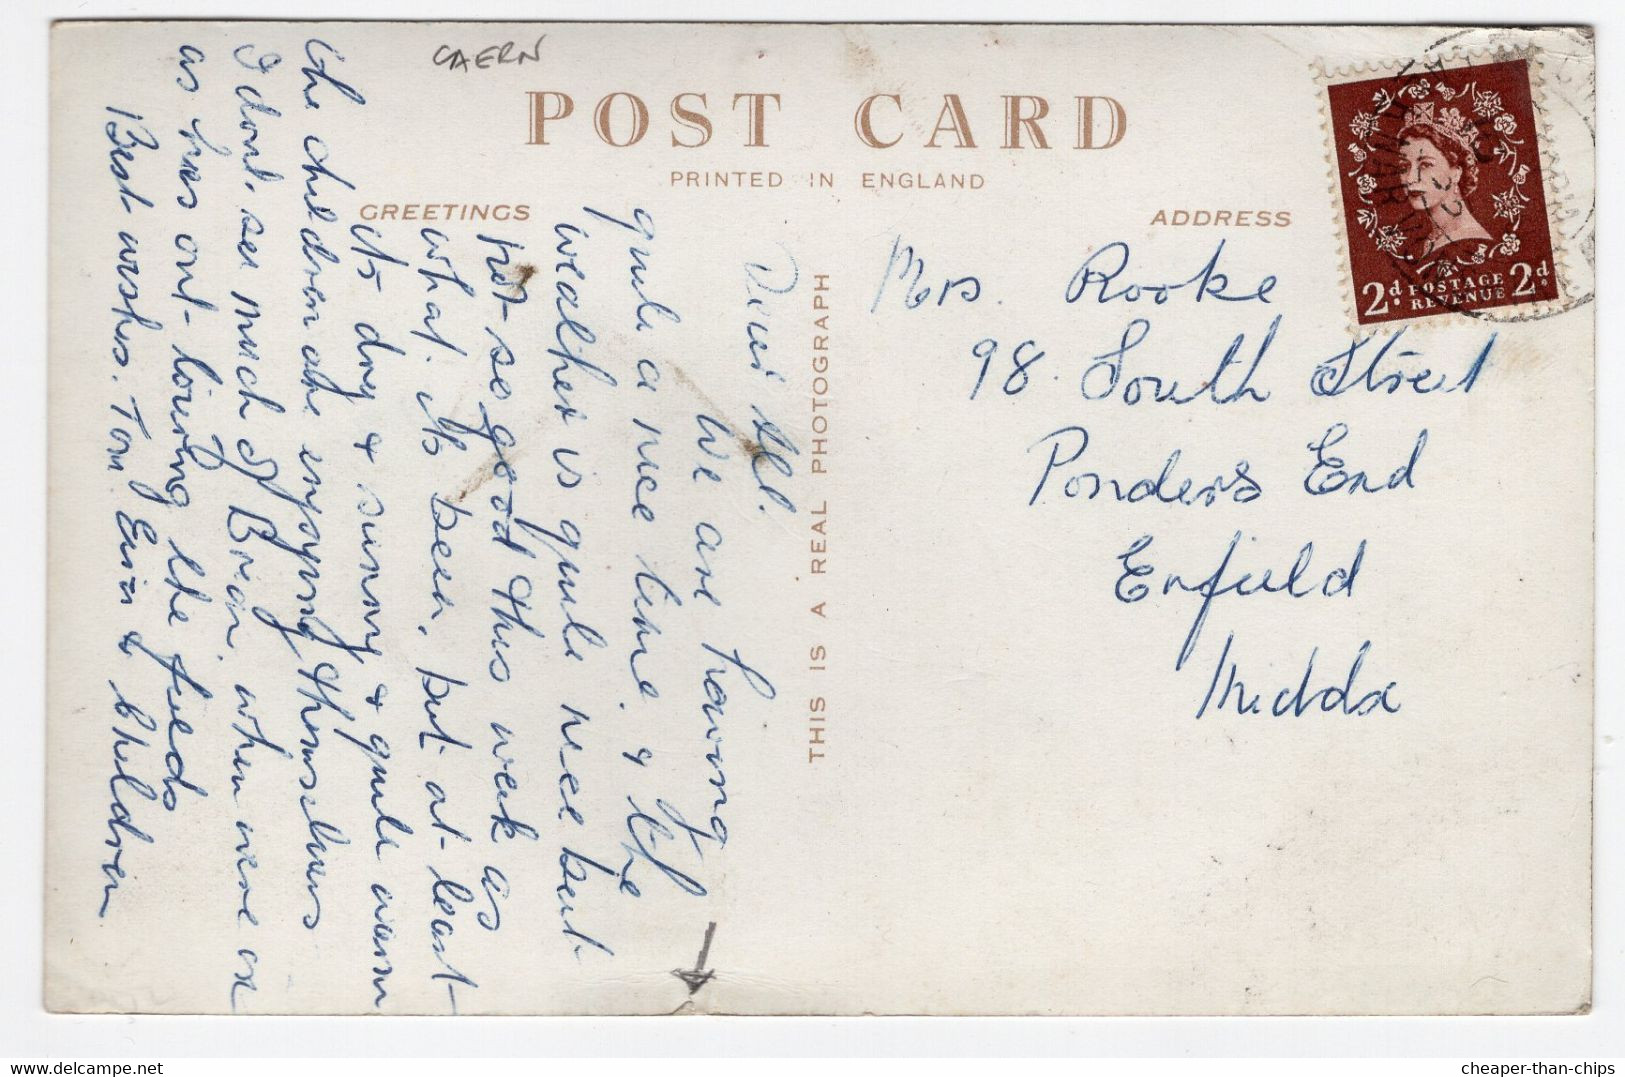 CAERN
POST CARD
PRINTED IN ENGLAND
GREETINGS
ADDRESS
THIS IS A REAL PHOTOGRAPH
We are having
quite a nice time. & the
weather is quite nice but
not so good this week as
what its been, but at least
its dry & sunny & quite warm
The children are enjoying themselves
I dont see much of Brian, when were on
as hes out loving the fields
Best wishes. Tom & children
Mrs. Rooke
98. South Street
Ponders End
Enfield
Middx
2d POSTAGE 2d
REVENUE
cheaper-than-chips